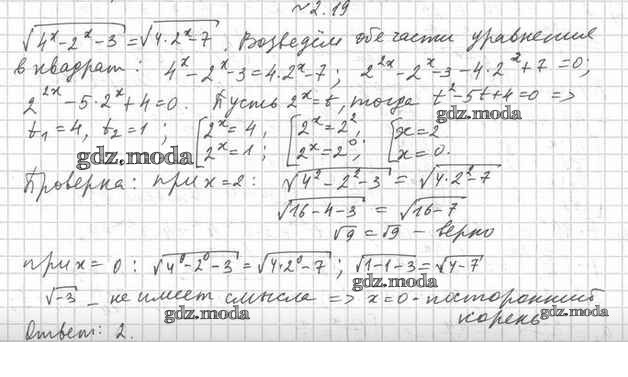 №2.19
√(4ˣ-2ˣ-3) = √(4·2ˣ-7). Возведём обе части уравнения
в квадрат: 4ˣ-2ˣ-3=4·2ˣ-7; 2²ˣ-2ˣ-3-4·2ˣ+7=0;
2²ˣ-5·2ˣ+4=0. Пусть 2ˣ=t, тогда t²-5t+4=0 =>
t₁=4, t₂=1; [2ˣ=4, [2ˣ=2², [x=2
2ˣ=1; 2ˣ=2⁰; x=0.
gdz.moda
gdz.moda
Проверка: при x=2: √(4²-2²-3) = √(4·2²-7)
√(16-4-3) = √(16-7)
√9 = √9 - верно
при x=0: √(4⁰-2⁰-3) = √(4·2⁰-7); √(1-1-3) = √(4-7)
√-3 - не имеет смысла => x=0-посторонний
корень
gdz.moda
gdz.moda
Ответ: 2.